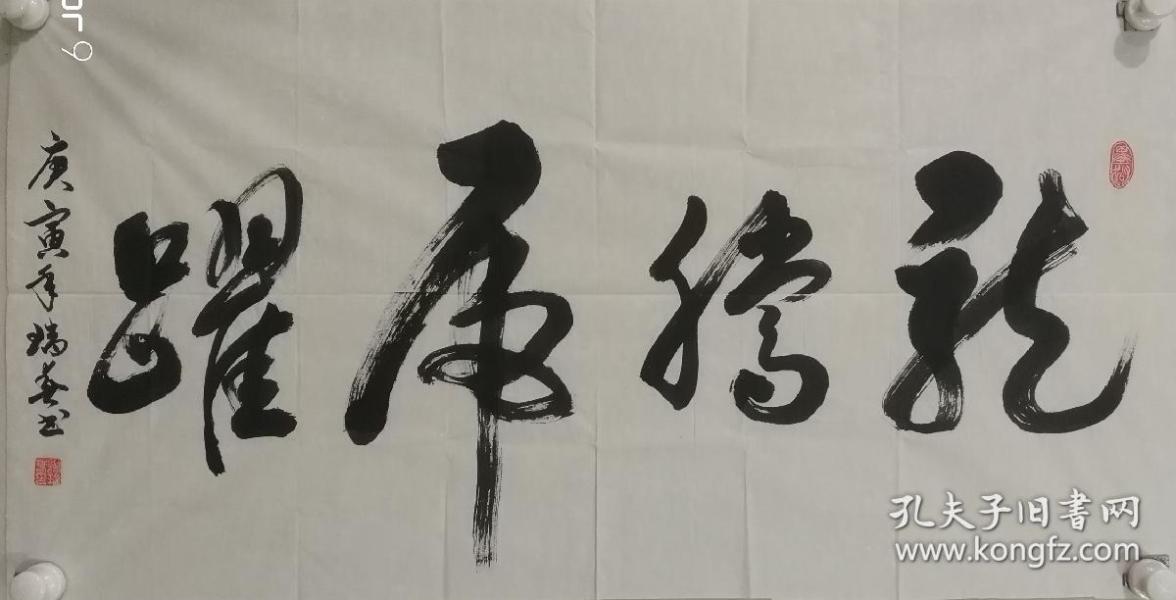 龍騰虎躍
庚寅年瑞春书
孔夫子旧書网
www.kongfz.com